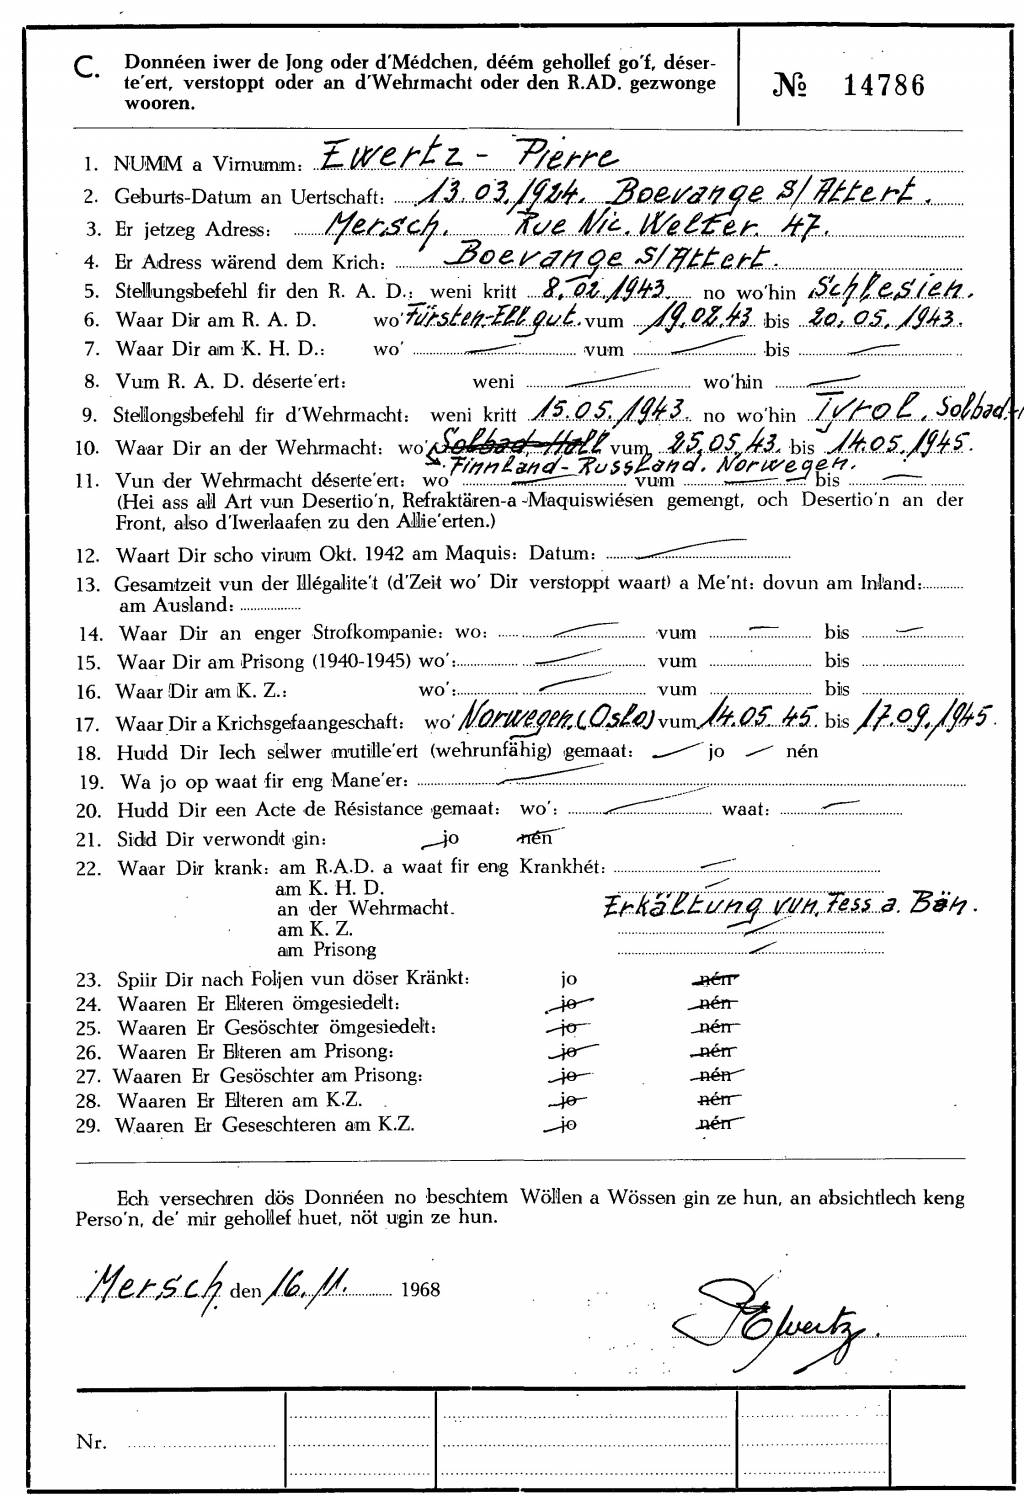 C. Donnéen iwer de Jong oder d'Médchen, déém gehollef go'f, déser-
te'ert, verstoppt oder an d'Wehrmacht oder den R.AD. gezwonge
wooren.
№ 14786
1. NUMM a Virnumm: Ewertz - Pierre
2. Geburts-Datum an Uertschaft: 13.03.1924. Boevange S/Attert.
3. Er jetzeg Adress: Mersch. Rue Nic. Welter. 47.
4. Er Adress wärend dem Krich: Boevange S/Attert.
5. Stellungsbefehl fir den R. A. D.: weni kritt 8.02.1943. no wo'hin Schlesien.
6. Waar Dir am R. A. D. wo' Fürsten-Ellgut. vum 19.02.43 bis 20.05.1943.
7. Waar Dir am K. H. D.: wo' — vum — bis —
8. Vum R. A. D. déserte'ert: weni — wo'hin —
9. Stellongsbefehl fir d'Wehrmacht: weni kritt 15.05.1943. no wo'hin Tyrol. Solbad-H
10. Waar Dir an der Wehrmacht: wo' Solbad-Hall vum 25.05.43. bis 14.05.1945.
Finnland-Russland. Norwegen.
11. Vun der Wehrmacht déserte'ert: wo' — vum — bis —
(Hei ass all Art vun Desertio'n, Refraktären-a-Maquiswiésen gemengt, och Desertio'n an der
Front, also d'Iwerlaafen zu den Allie'erten.)
12. Waart Dir scho virum Okt. 1942 am Maquis: Datum: —
13. Gesamtzeit vun der Illégalite't (d'Zeit wo' Dir verstoppt waart) a Me'nt: dovun am Inland:
am Ausland:
14. Waar Dir an enger Strofkompanie: wo: — vum — bis —
15. Waar Dir am Prisong (1940-1945) wo': — vum bis
16. Waar Dir am K. Z.: wo': — vum bis
17. Waar Dir a Krichsgefaangeschaft: wo' Norwegen.(Oslo) vum 14.05.45. bis 17.09.1945.
18. Hudd Dir Iech selwer mutille'ert (wehrunfähig) gemaat: — jo — nén
19. Wa jo op waat fir eng Mane'er: —
20. Hudd Dir een Acte de Résistance gemaat: wo': — waat: —
21. Sidd Dir verwondt gin: jo nén
22. Waar Dir krank: am R.A.D. a waat fir eng Krankhét: —
am K. H. D. —
an der Wehrmacht. Erkältung vun Fess a. Bön.
am K. Z. —
am Prisong —
23. Spiir Dir nach Foljen vun döser Kränkt: jo nén
24. Waaren Er Elteren ömgesiedelt: jo nén
25. Waaren Er Gesöschter ömgesiedelt: jo nén
26. Waaren Er Elteren am Prisong: jo nén
27. Waaren Er Gesöschter am Prisong: jo nén
28. Waaren Er Elteren am K.Z. jo nén
29. Waaren Er Geseschteren am K.Z. jo nén
Ech versechren dös Donnéen no beschtem Wöllen a Wössen gin ze hun, an absichtlech keng
Perso'n, de' mir gehollef huet, nöt ugin ze hun.
Mersch den 16.11. 1968
PEwertz.
Nr.